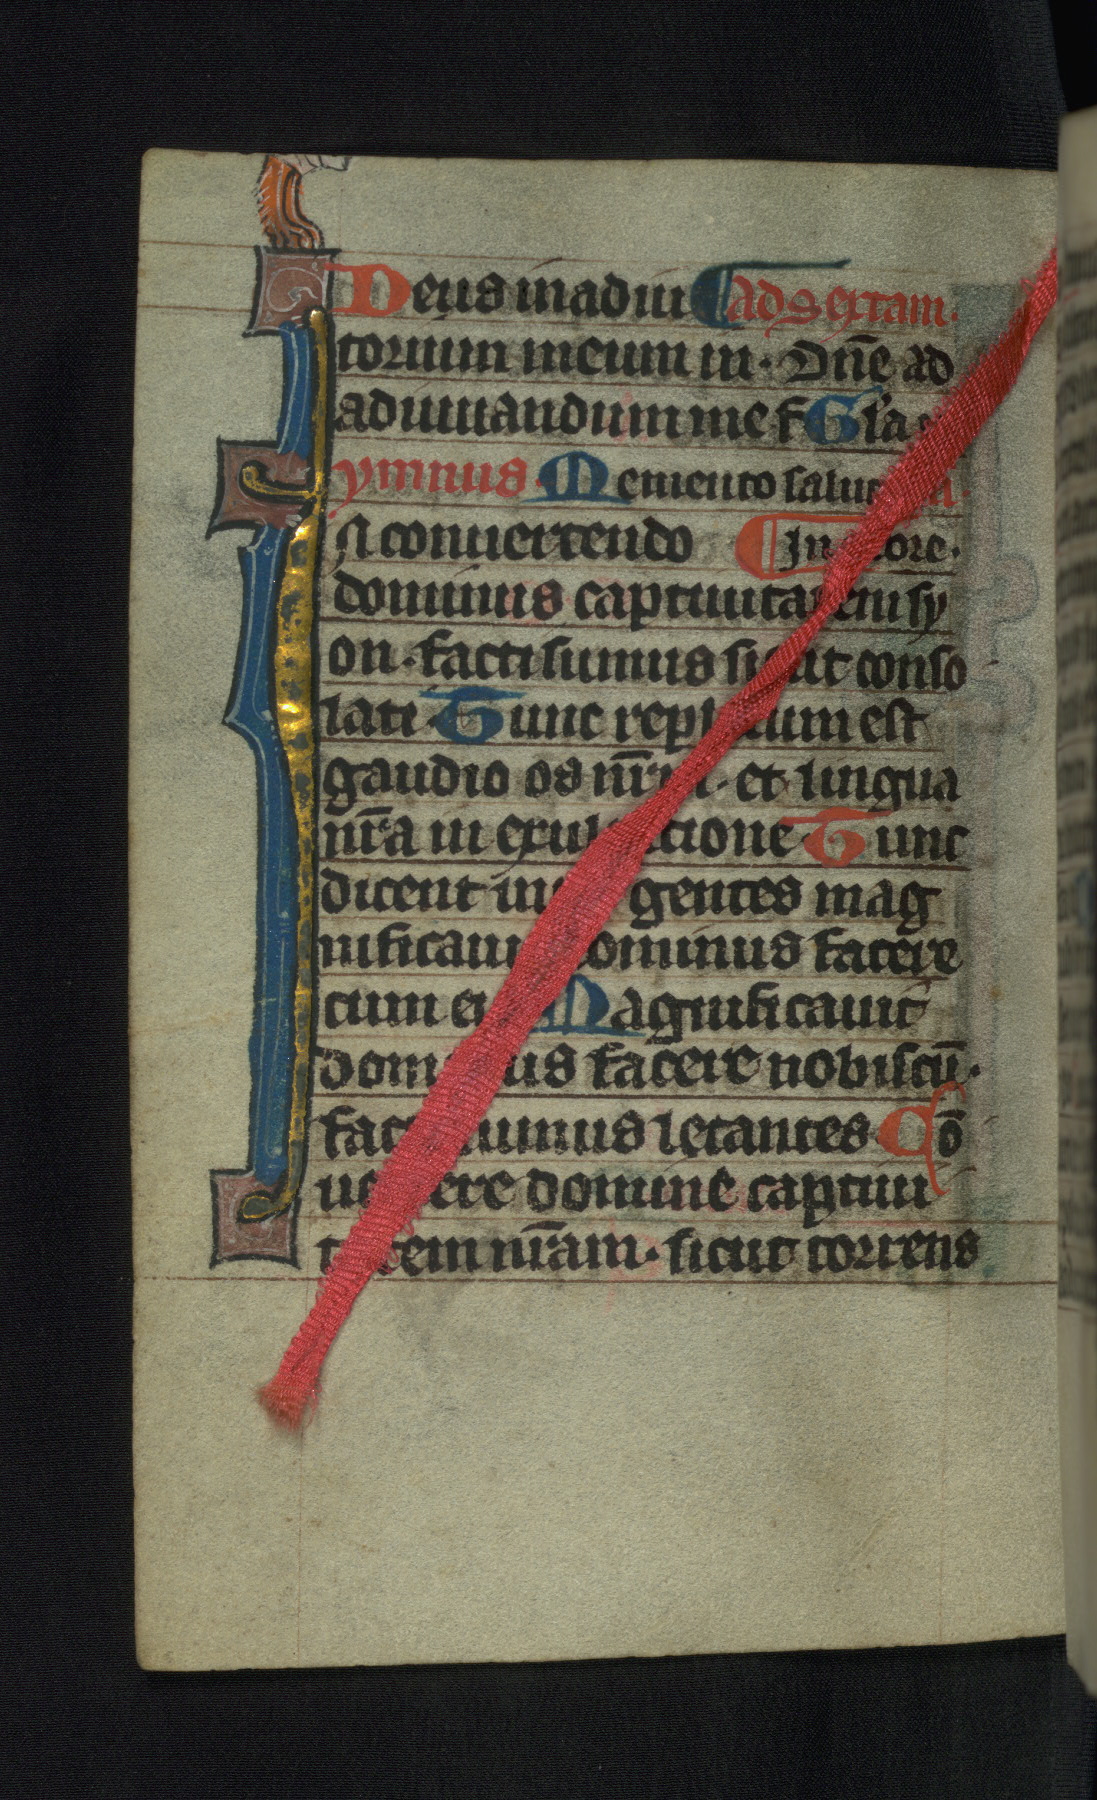 Deus in adiu Ad sextam.
torium meum in. Dñe ad
adiuuandum me f Gľa
ymnus. Memento salut
In conuertendo In
dominus captiuitatem sy
on. facti sumus sicut conso
lati. Tunc repletum est
gaudio os nr̄m. et lingua
nr̄a in exultatione Tunc
dicent gentes mag
nificauit dominus facere
cum Magnificauit
dominus facere nobiscū.
facti sumus letantes Cō
uertere domine captiui
tatem nr̄am. sicut torrens